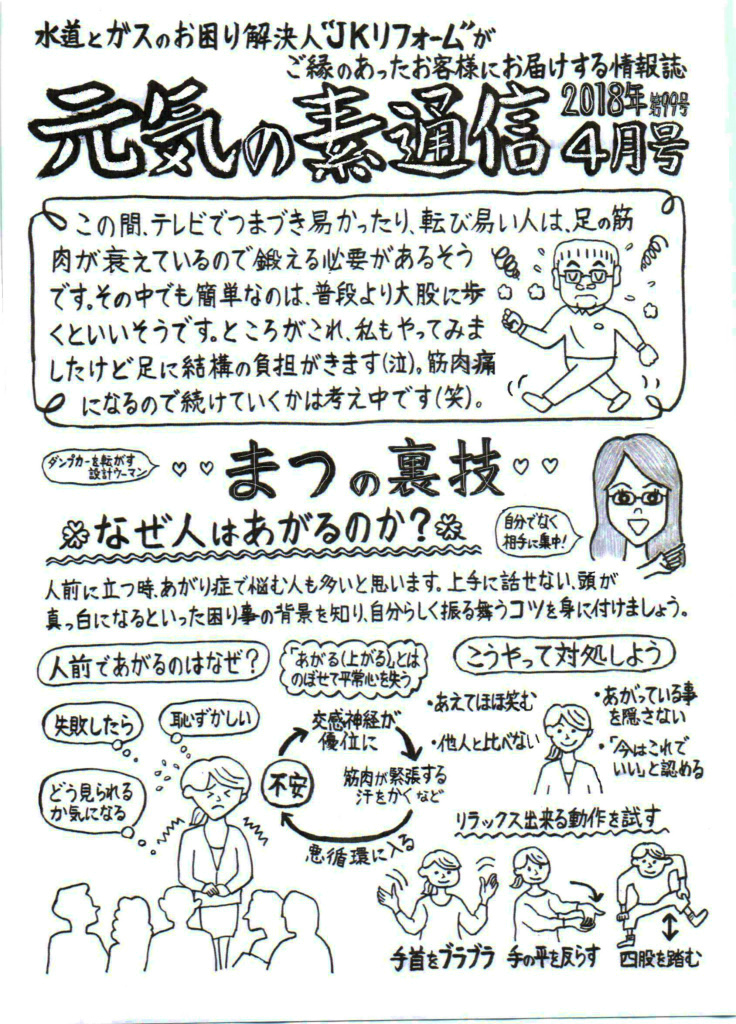 水道とガスのお困り解決人"JKリフォーム"が
ご縁のあったお客様にお届けする情報誌
元気の素通信
2018年 第99号
4月号
この間、テレビでつまづき易かったり、転び易い人は、足の筋
肉が衰えているので鍛える必要があるそう
です。その中でも簡単なのは、普段より大股に歩
くといいそうです。ところがこれ、私もやってみま
したけど足に結構の負担がきます(泣)。筋肉痛
になるので続けていくかは考え中です(笑)。
ダンプカーを転がす
設計ウーマン
♡♡まつの裏技♡♡
なぜ人はあがるのか?
自分でなく
相手に集中!
人前に立つ時、あがり症で悩む人も多いと思います。上手に話せない、頭が
真っ白になるといった困り事の背景を知り、自分らしく振る舞うコツを身に付けましょう。
人前であがるのはなぜ?
失敗したら
恥ずかしい
どう見られる
か気になる
「あがる(上がる)」とは
のぼせて平常心を失う
交感神経が
優位に
不安
筋肉が緊張する
汗をかくなど
悪循環に入る
こうやって対処しよう
・あえてほほ笑む
・他人と比べない
・あがっている事
を隠さない
・「今はこれで
いい」と認める
リラックス出来る動作を試す
手首をブラブラ
手の平を反らす
四股を踏む